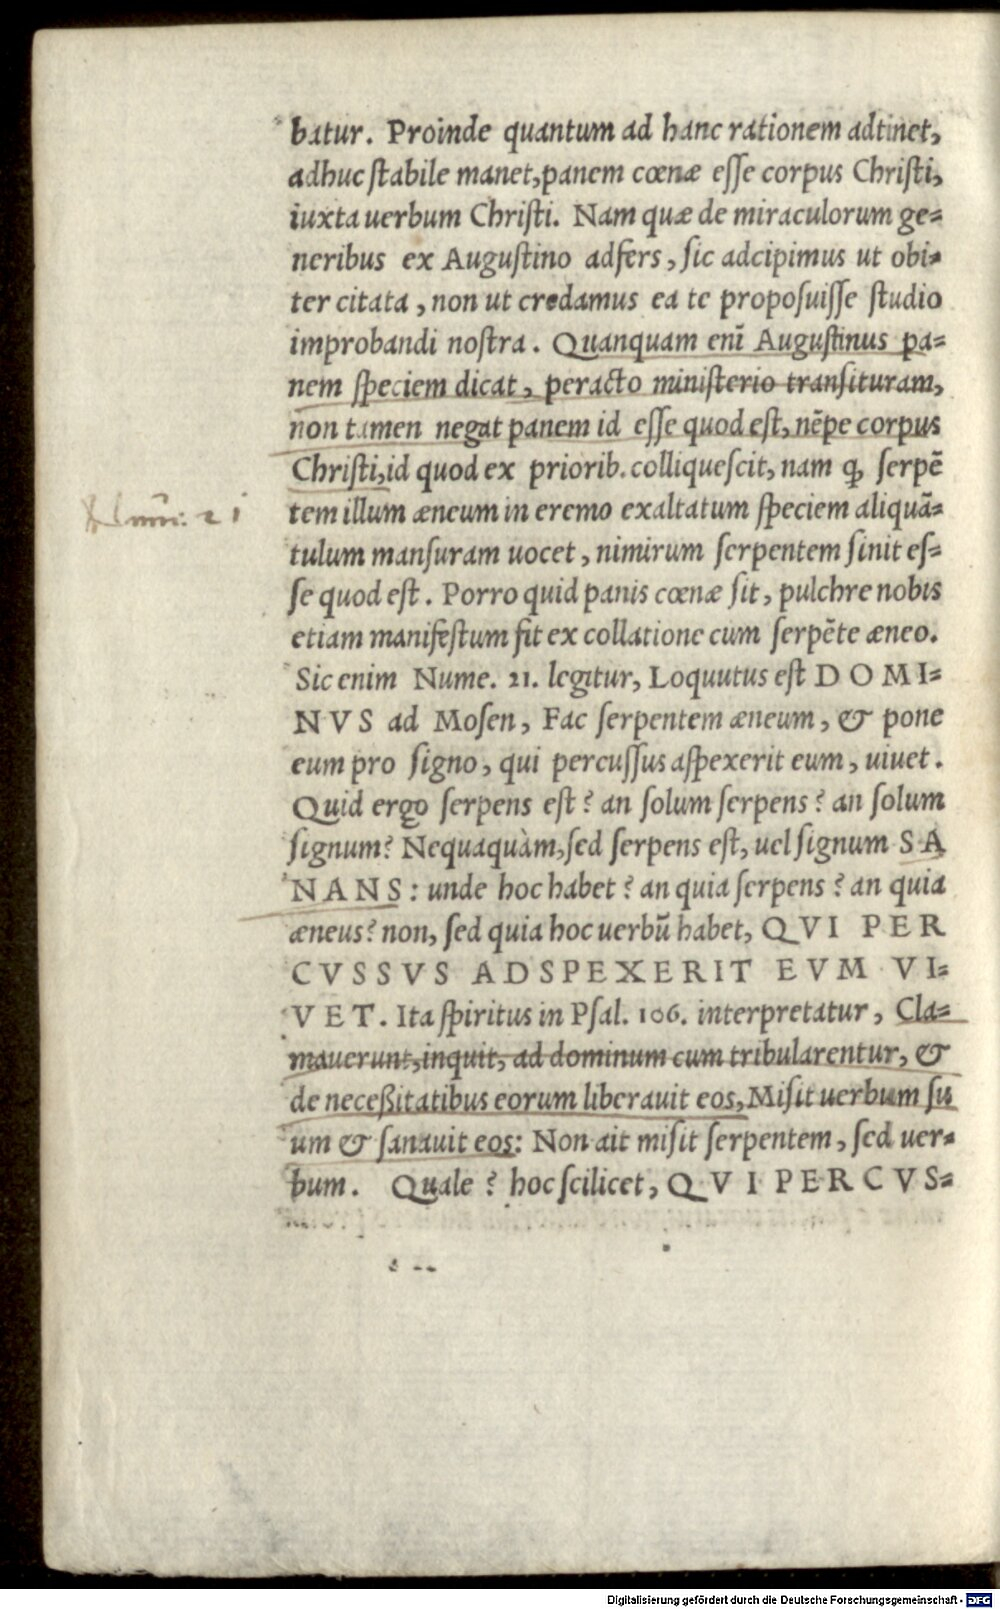 batur. Proinde quantum ad hanc rationem adtinet,
adhuc ſtabile manet, panem cœnæ eſſe corpus Chriſti,
iuxta uerbum Chriſti. Nam quæ de miraculorum ge=
neribus ex Auguſtino adfers, ſic adcipimus ut obi=
ter citata, non ut credamus ea te propoſuiſſe ſtudio
improbandi noſtra. Quanquam enī Auguſtinus pa=
nem ſpeciem dicat, peracto miniſterio tranſituram,
non tamen negat panem id eſſe quod eſt, nēpe corpus
Chriſti, id quod ex priorib. colliqueſcit, nam ꝙ ſerpē
Num: 21
tem illum æneum in eremo exaltatum ſpeciem aliquā=
tulum manſuram uocet, nimirum ſerpentem ſinit eſ=
ſe quod eſt. Porro quid panis cœnæ ſit, pulchre nobis
etiam manifeſtum fit ex collatione cum ſerpēte æneo.
Sic enim Nume. 21. legitur, Loquutus eſt DOMI=
NVS ad Moſen, Fac ſerpentem æneum, & pone
eum pro ſigno, qui percuſſus aſpexerit eum, uiuet.
Quid ergo ſerpens eſt? an ſolum ſerpens? an ſolum
ſignum? Nequaquàm, ſed ſerpens eſt, uel ſignum SA
NANS: unde hoc habet? an quia ſerpens? an quia
æneus? non, ſed quia hoc uerbū habet, QVI PER
CVSSVS ADSPEXERIT EVM VI=
VET. Ita ſpiritus in Pſal. 106. interpretatur, Cla=
mauerunt, inquit, ad dominum cum tribularentur, &
de neceßitatibus eorum liberauit eos, Miſit uerbum ſu
um & ſanauit eos: Non ait miſit ſerpentem, ſed uer=
bum. Quale? hoc ſcilicet, QVI PERCVS=
Digitalisierung gefördert durch die Deutsche Forschungsgemeinschaft - DFG